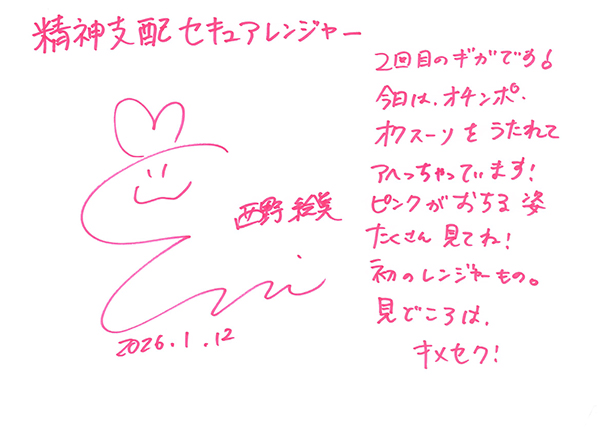 精神支配セキュアレンジャー
2回目のギガです！
今日は、オチンポ、
オクスーリをうたれて
アヘっちゃっています！
ピンクがおちる姿
たくさん見てね！
初のレンジャーもの。
見どころは、
キメセク！
西野絵美
Emi
2026.1.12